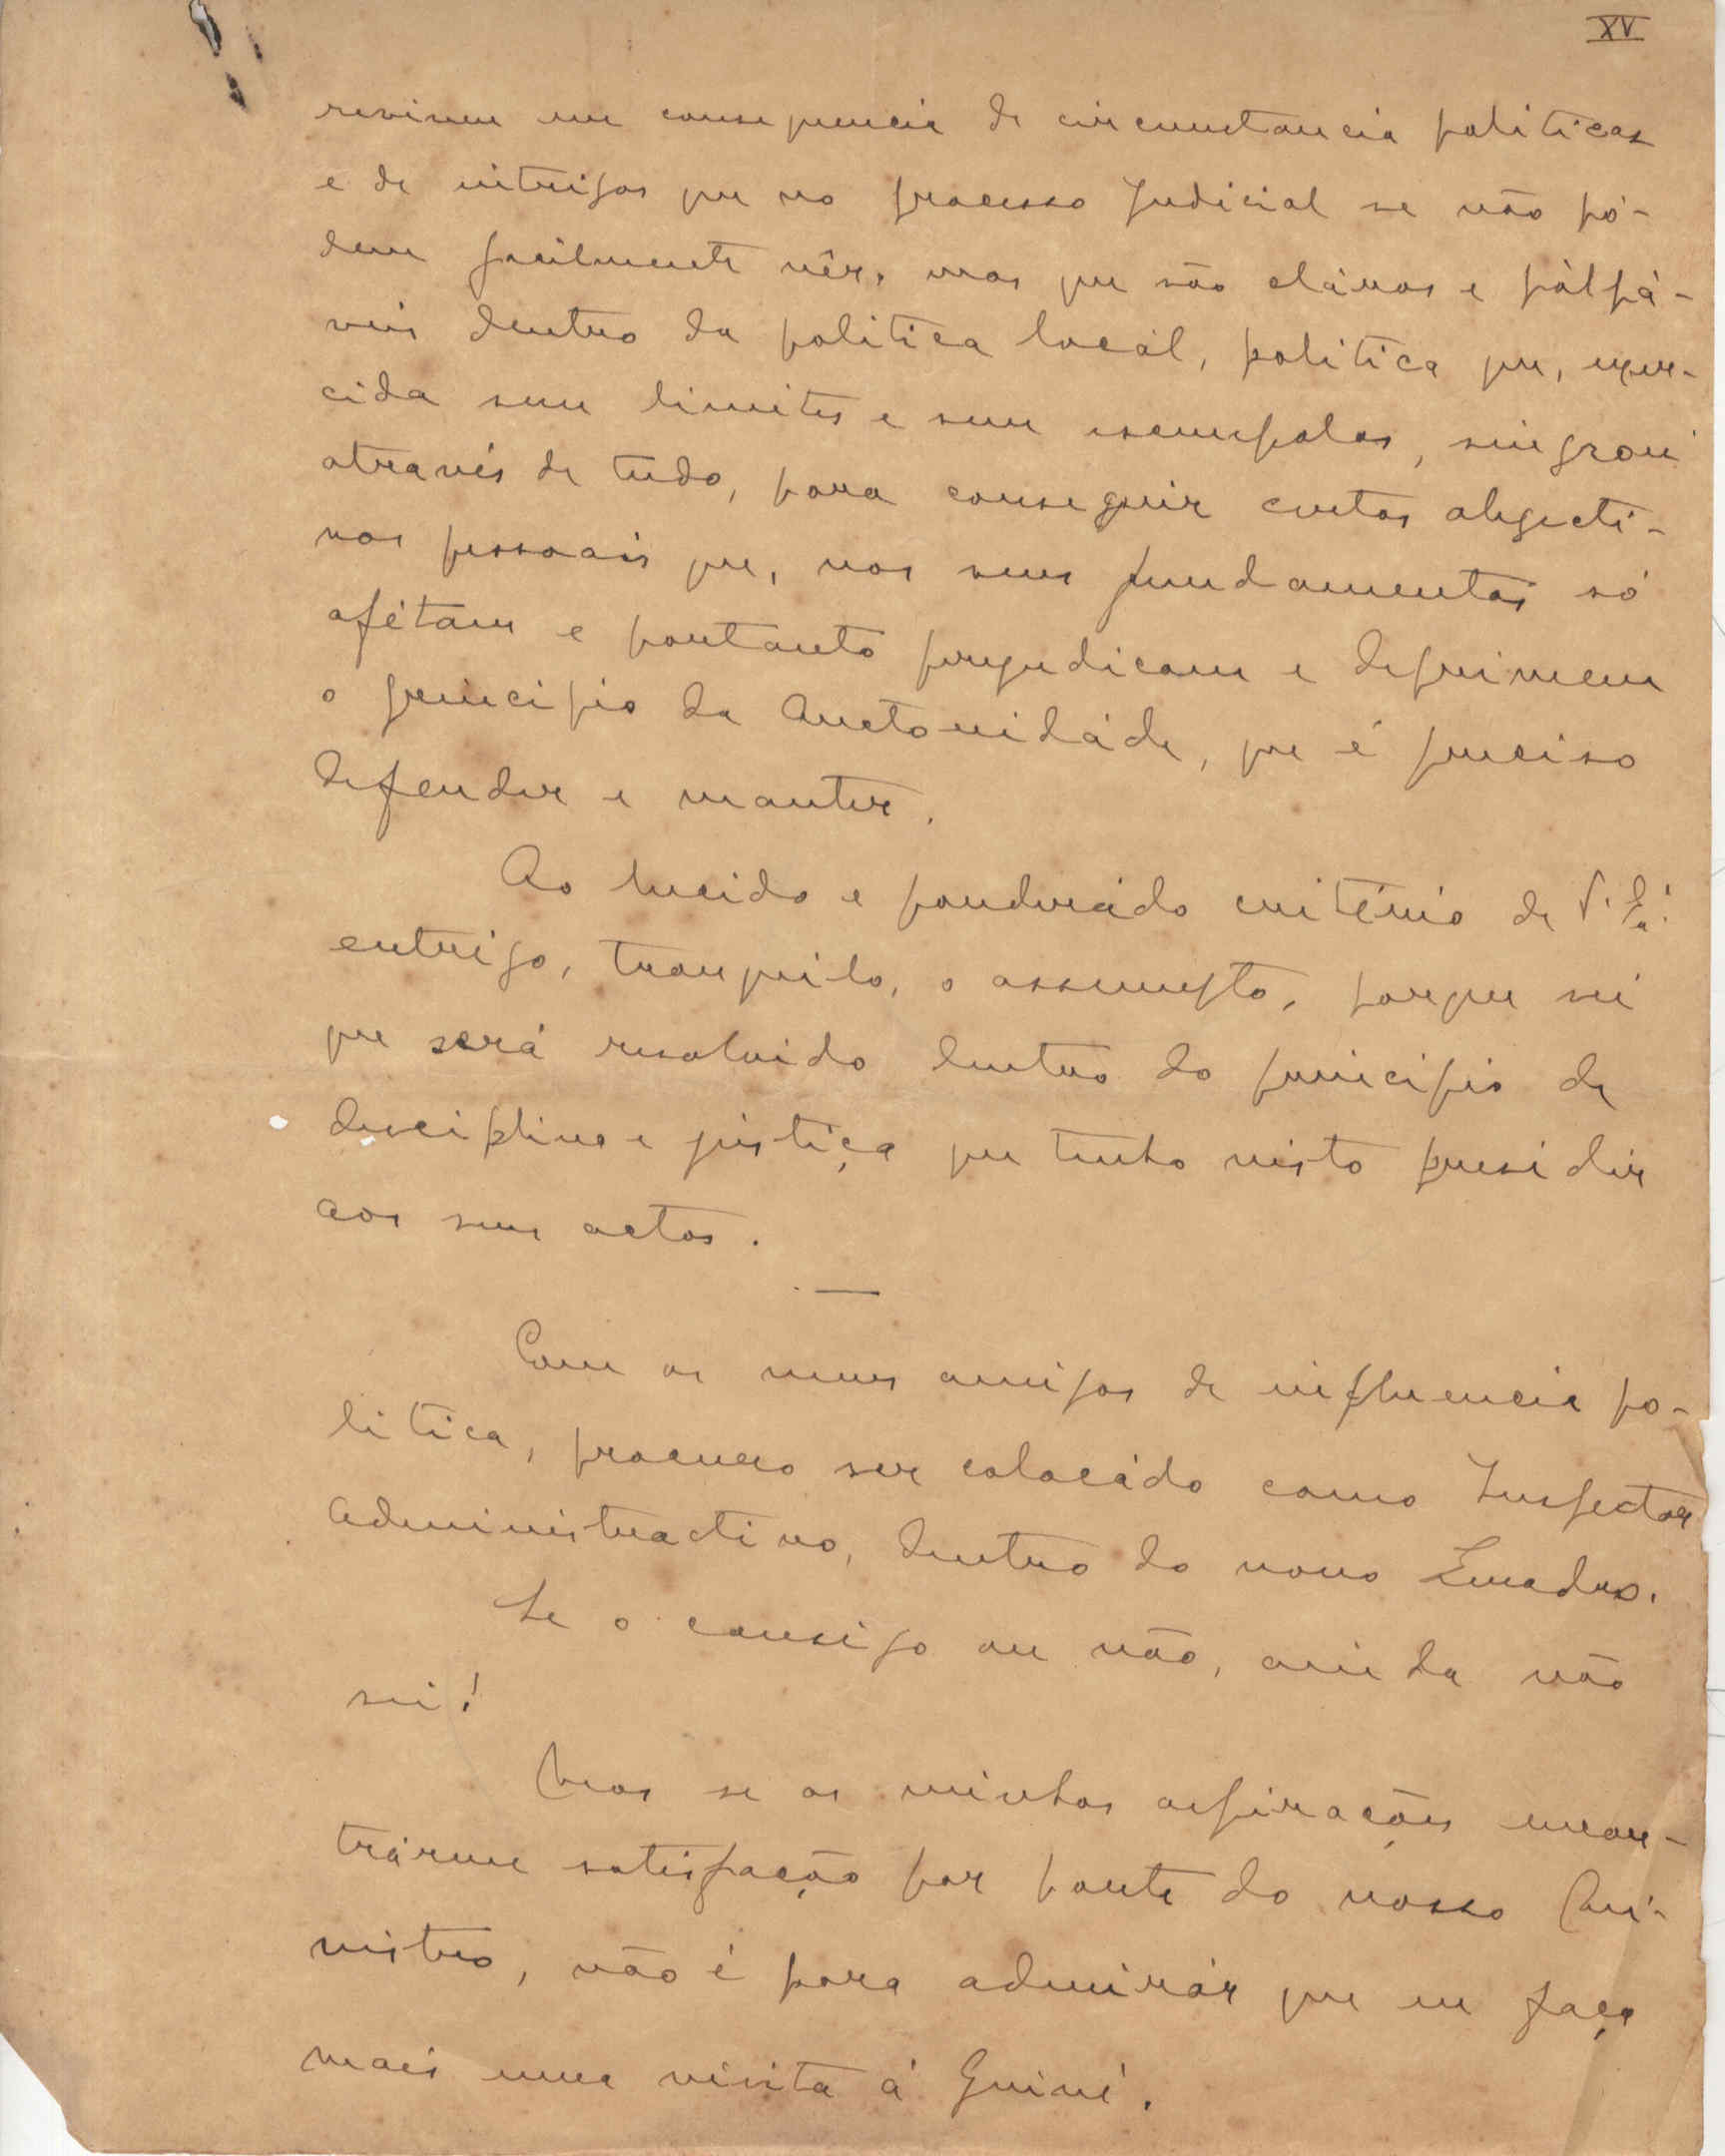 XV
revivem em consequencia de circumstancia politicas
e de intrigas que no processo Judicial se não pó-
dem facilmente vêr, mas que são cláras e pálpá-
veis dentro da politica locál, politica que, exer-
cida sem limites e sem escrupolos, singrou
através de tudo, para conseguir certos objecti-
vos pessoais que, nos seus fundamentos só
afétam e portanto perjudicam e deprimem
o principio da Auctoridáde, que é preciso
defender e manter.
Ao lucido e ponderádo critério de V.
entrego, tranquilo, o assumpto, porque sei
que será resolvido dentro do principio de
disciplina e justiça que tenho visto presidir
aos seus actos.
Com os meus amigos de influencia po-
litica, procuro ser colocádo como Inspector
Administractivo, dentro do novo Quadro.
Se o consigo ou não, ainda não
sei!
Mas se as minhas aspirações encon-
trárme satisfação por parte do nosso Mi-
nistro, não é para admirár que eu faça
mais uma visita á Guiné.